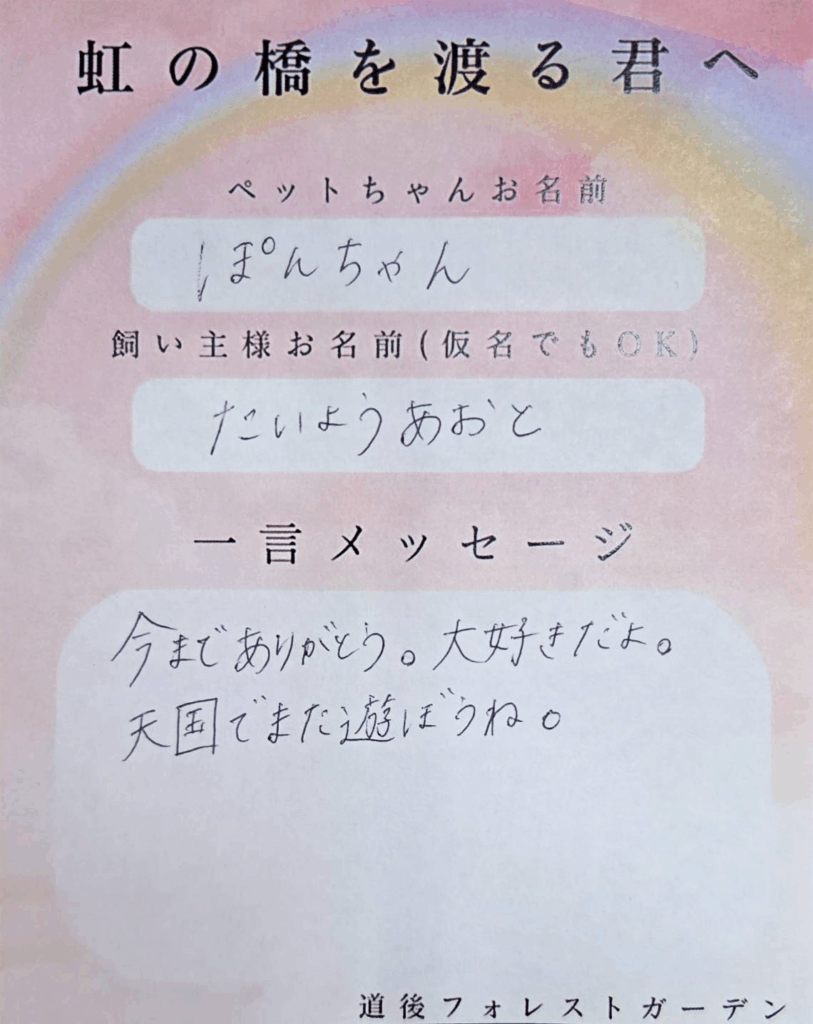 虹の橋を渡る君へ
ペットちゃんお名前
ぽんちゃん
飼い主様お名前(仮名でもOK)
たいようあおと
一言メッセージ
今までありがとう。大好きだよ。
天国でまた遊ぼうね。
道後フォレストガーデン